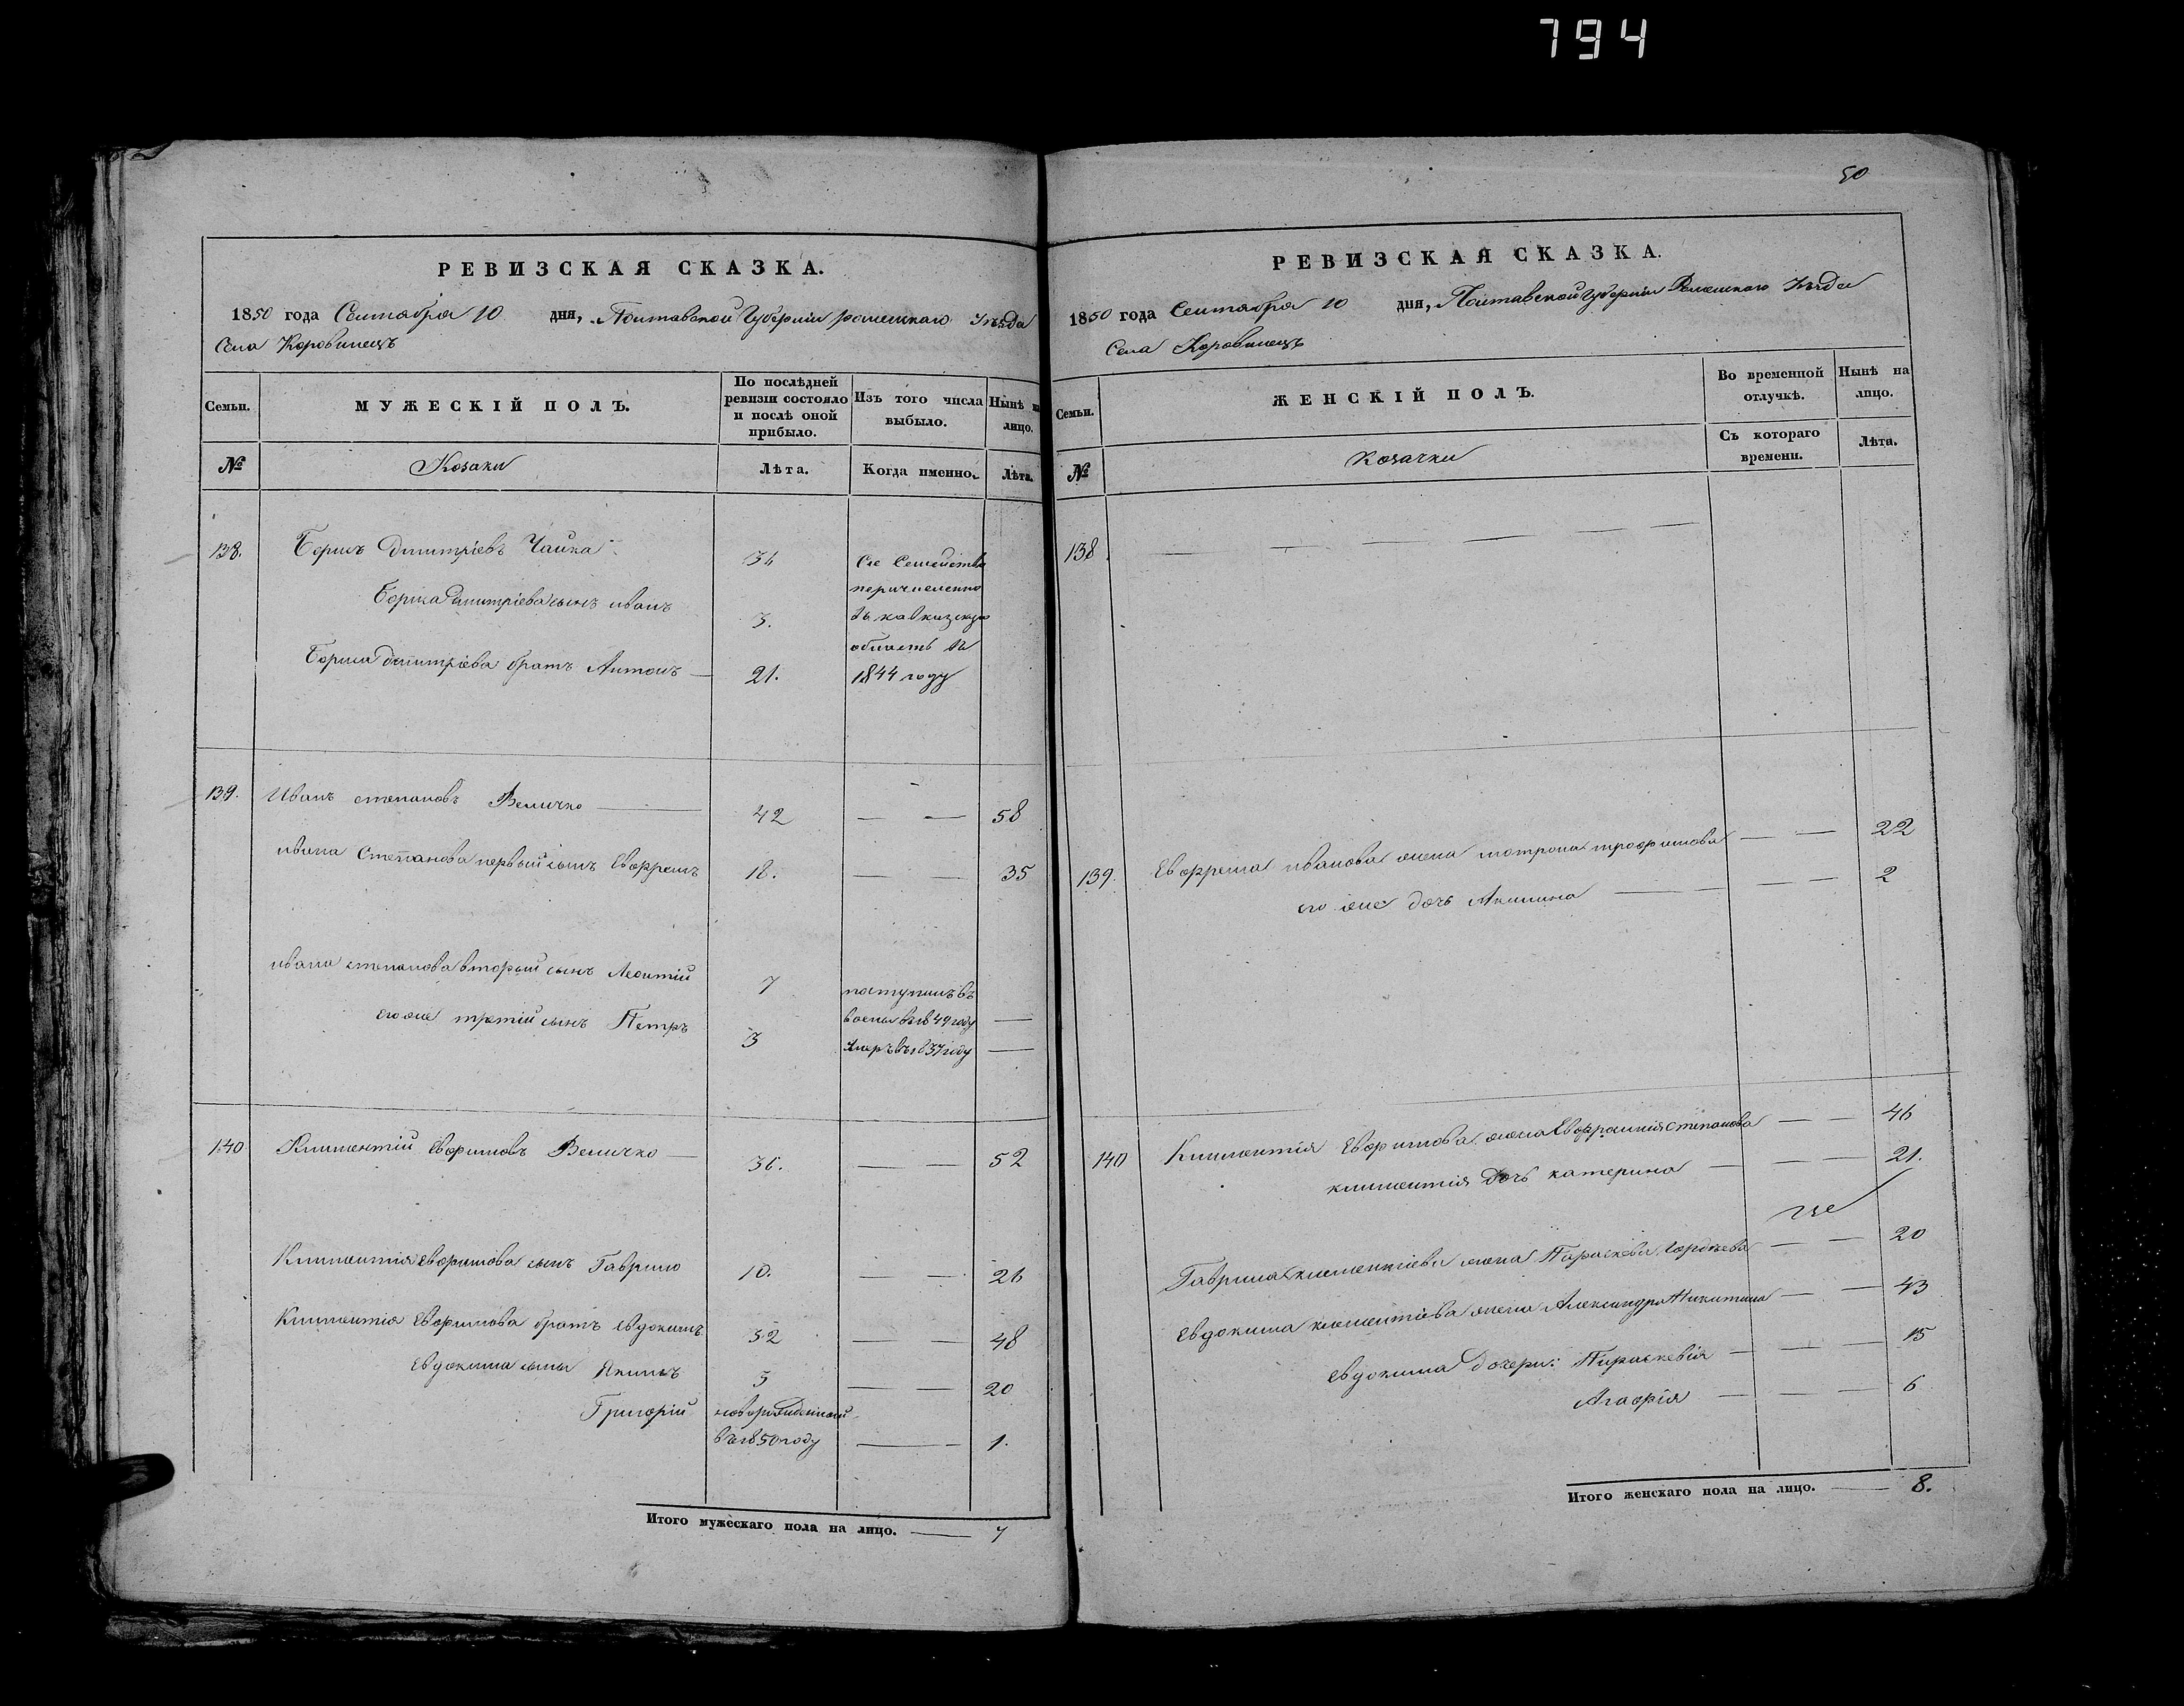 794
РЕВИЗСКАЯ СКАЗКА.
1850 года Сентября 10 дня, Полтавской Губернии роменскаго Уѣзда
Села Коровинецъ
Семьи. МУЖЕСКІЙ ПОЛЪ. По послѣдней ревизіи состояло и послѣ оной прибыло. Изъ того числа выбыло. Нынѣ на лицо.
№ Козаки Лѣта. Когда именно. Лѣта.
138. Борисъ Дмитріевъ Чайка 36 Сіе Семейство
перечисленно
Бориса Дмитріева сынъ иванъ 3. въ кавказскую
область въ
Бориса Дмитріева братъ Антонъ 21. 1844 году
139. Иванъ степановъ Величко 42 58
ивана Степанова первый сынъ Евфремъ 18. 35
ивана степанова вторый сынъ Леонтій 7 поступилъ въ
военны въ 1849 году
его же третій сынъ Петръ 3 умеръ въ 1837 году
140 Климентій Евфимовъ Величко 36. 52
Климентія Евфимова сынъ Гаврило 10. 26
Климентія Евфимова братъ Евдокимъ 32 48
Евдокима сыны Якимъ 3 20
Григорій новорожденный
въ 1850 году 1.
Итого мужескаго пола на лицо. 7
50
РЕВИЗСКАЯ СКАЗКА.
1850 года Сентября 10 дня, Полтавской Губерніи Роменскаго Уѣзда
Села Коровинецъ
Семьи. ЖЕНСКІЙ ПОЛЪ. Во временной отлучкѣ. Нынѣ на лицо.
№ Козачки Съ котораго времени. Лѣта.
138.
139. Евфрема иванова жена мотрона трофимова 22
его же дочь Акилина 2
140 Климентія Евфимова жена Евфросинія степанова 46
климентія дочь катерина 21.
Гаврила климентіева жена Параскева Гордѣева 20
Евдокима климентіева жена Александра Никитина 43
Евдокима дочери: Параскевія 15
Агафія 6
Итого женскаго пола на лицо. 8.